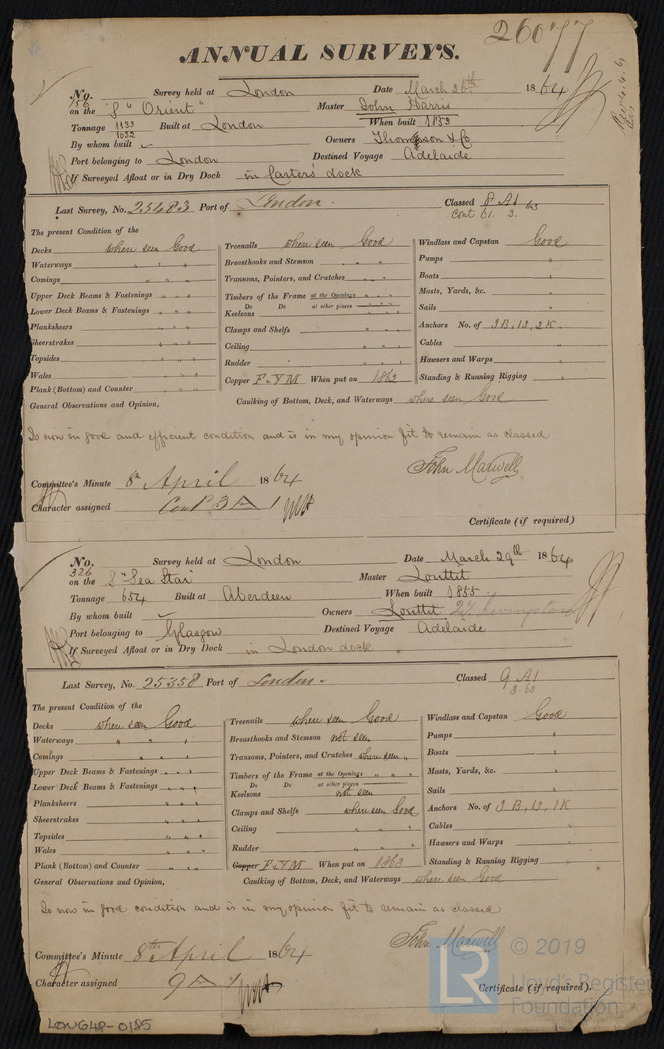 26077
ANNUAL SURVEYS.
No. 156 Survey held at London Date March 26th 1864
on the S "Orient" Master John Harris
Tonnage 1133 1032 Built at London When built 1853
By whom built Owners Thompson & Co
Port belonging to London Destined Voyage Adelaide
If Surveyed Afloat or in Dry Dock in Carters dock
Last Survey, No. 25483 Port of London. Classed 8 A1 63
Cont 61. 3.
The present Condition of the
Decks where seen Good Treenails where seen Good Windlass and Capstan Good
Waterways " " " Breasthooks and Stemson " " " Pumps "
Comings " " " Transoms, Pointers, and Crutches " " " Boats "
Upper Deck Beams & Fastenings " " " Timbers of the Frame at the Openings " " " Masts, Yards, &c. "
Lower Deck Beams & Fastenings " " " Do Do at other places " " " Sails "
Keelsons " " "
Planksheers " " " Clamps and Shelfs " " " Anchors No. of 3B, 1S, 2K.
Sheerstrakes " " " Ceiling " " " Cables "
Topsides " " " Rudder " " " Hawsers and Warps "
Wales " " " Copper F. & Y M When put on 1862 Standing & Running Rigging "
Plank (Bottom) and Counter " " " Caulking of Bottom, Deck, and Waterways where seen Good
General Observations and Opinion,
Is now in good and efficient condition and is in my opinion fit to remain as classed
John Maxwell
Committee's Minute 8th April 1864
Character assigned Cont P 3 A 1
Certificate (if required)
No. 326 Survey held at London Date March 29th 1864
on the S "Sea Star" Master Louttit
Tonnage 654 Built at Aberdeen When built 1855
By whom built Owners Louttit
Port belonging to Glasgow Destined Voyage Adelaide
If Surveyed Afloat or in Dry Dock in London dock
Last Survey, No. 25358 Port of London. Classed 9 A1
3.63
The present Condition of the
Decks where seen Good Treenails where seen Good Windlass and Capstan Good
Waterways " " " Breasthooks and Stemson not seen Pumps "
Comings " " " Transoms, Pointers, and Crutches where seen " Boats "
Upper Deck Beams & Fastenings " " " Timbers of the Frame at the Openings " " " Masts, Yards, &c. "
Lower Deck Beams & Fastenings " " " Do Do at other places " Sails "
Keelsons not seen
Planksheers " " " Clamps and Shelfs where seen Good Anchors No. of 3 B, 1S, 1K
Sheerstrakes " " " Ceiling " " " Cables "
Topsides " " " Rudder " " " Hawsers and Warps "
Wales " " " Copper F. & Y M When put on 1863 Standing & Running Rigging "
Plank (Bottom) and Counter " " " Caulking of Bottom, Deck, and Waterways where seen Good
General Observations and Opinion,
Is now in good condition and is in my opinion fit to remain as classed
John Maxwell
Committee's Minute 8th April 1864
Character assigned 9 A 1
Certificate (if required).
LON648-0185
LR © 2019
Lloyd's Register
Foundation